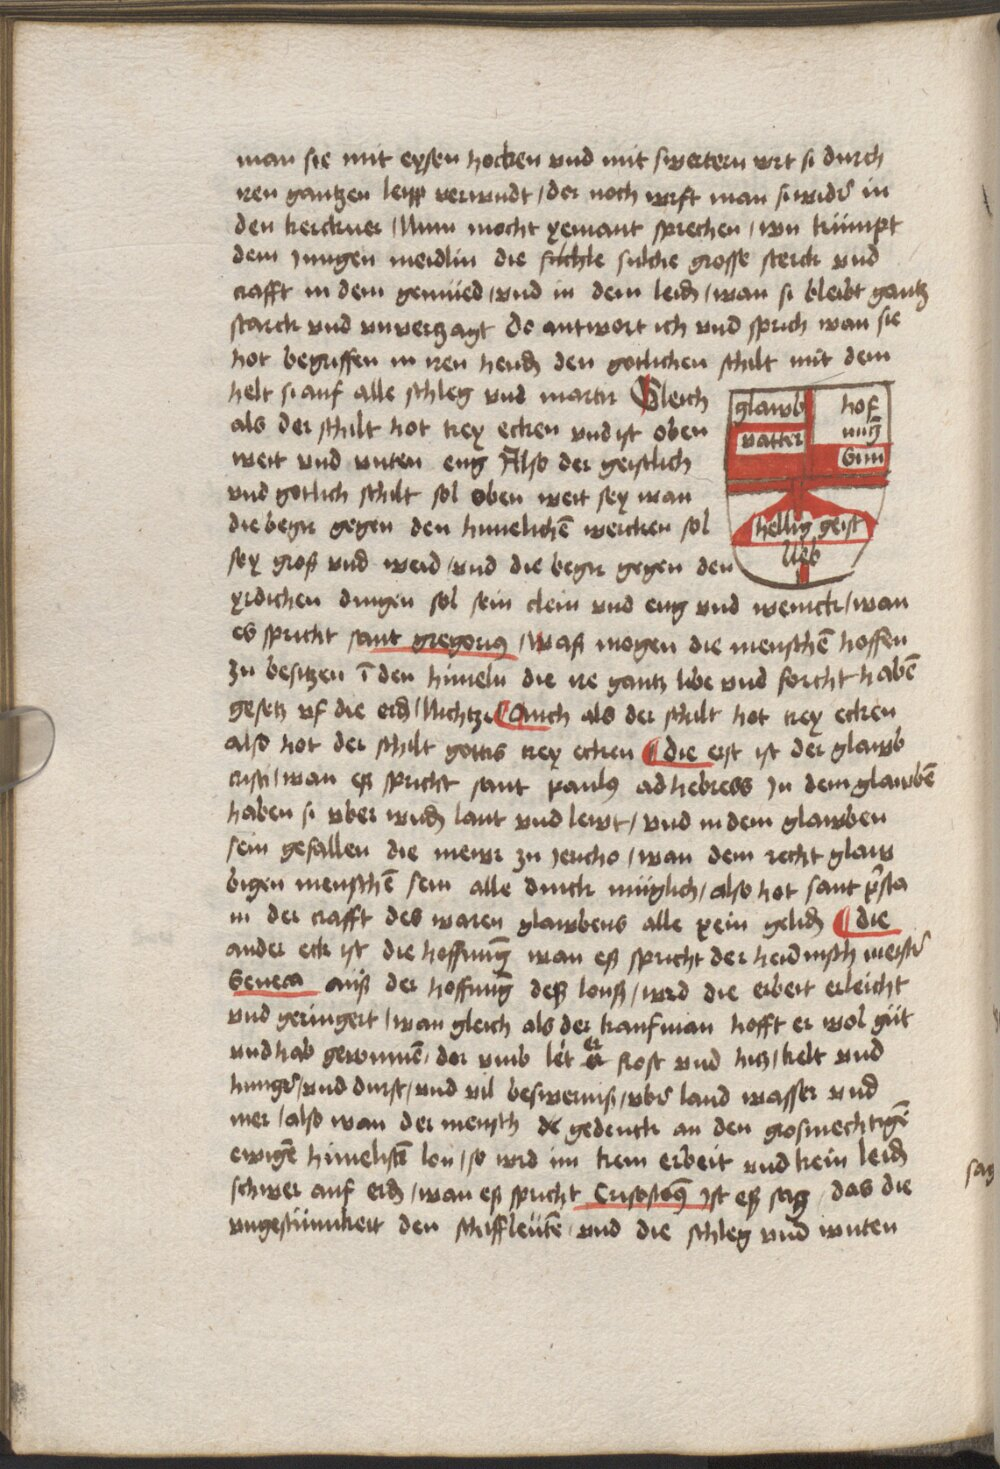 man sie mit eysen hocken vnd mit swertern wrt si durch
iren gantzen leyp verwndt / der noch wrft man si widʾ in
den kerckner / Nun mocht yemant sprechen / wu kumpt
dem Jungen meidlin die suchle sulche grosse sterck vnd
crafft in dem gemüed / vnd in dem leidn̄ / wan si bleibt gantz
starck vnd vnvertzagt Do antwort ich vnd sprich wan sie
hot begriffen in iren hendn̄ den gotlichen schilt mit dem
helt si auf alle schleg vnd martir Gleich
als der schilt hot trey ecken vnd ist oben
weit vnd vnten eng Also der geistlich
vnd gotlich schilt sol oben weit sey wan
die begir gegen den himelichē wercken sol
sey groß vnd weid / vnd die begir gegen den
yrdichen dingen sol sein clein vnd eng vnd wenick / wan
es spricht sant gregoriꝰ / waß mogen die menschē hoffen
zu besitzen ī den himeln die ire gantz libe vnd forcht habē
gesetz vf die erdn̄ / Nichtz Auch als der schilt hot trey ecken
also hot der schilt gottis trey ecken die erst ist der glawb
cristi / wan eß spricht sant paulꝰ ad hebreos Jn dem glawbē
haben si vber wndn̄ lant vnd lewt / vnd in dem glawben
sein gefallen die mewr zu Jericho / wan dem recht glaw
bigen menschē sein alle dinck müglich / also hot sant
in der crafft des waren glawbens alle pein gelidn̄ die
ander eck ist die hoffnunḡ wan eß spricht der heidnisch meistʾ
Seneca auß der hoffnunḡ deß lonß / wrd die erbeit erleicht
vnd geringert / wan gleich als der kaufman hofft er wol güt
vnd hab gewinnē / dor vmb let er frost vnd hitz / kelt vnd
hungʾ / vnd durst / vnd vil beswerniß / vbʾ land wasser vnd
mer / also wan der mensch de gedenck an den grosmechtigē
ewigē himelischē lon / so wrd im kein erbeit vnd kein leidn̄
schwer auf erdn̄ / wan eß spricht Crisostoꝰ Jst eß sag das die
vngestümikeit den schiffleütē / vnd die schleg vnd wnten
glawb
vatter
hof
nūg
Sun
heilig geist
lieb
sag